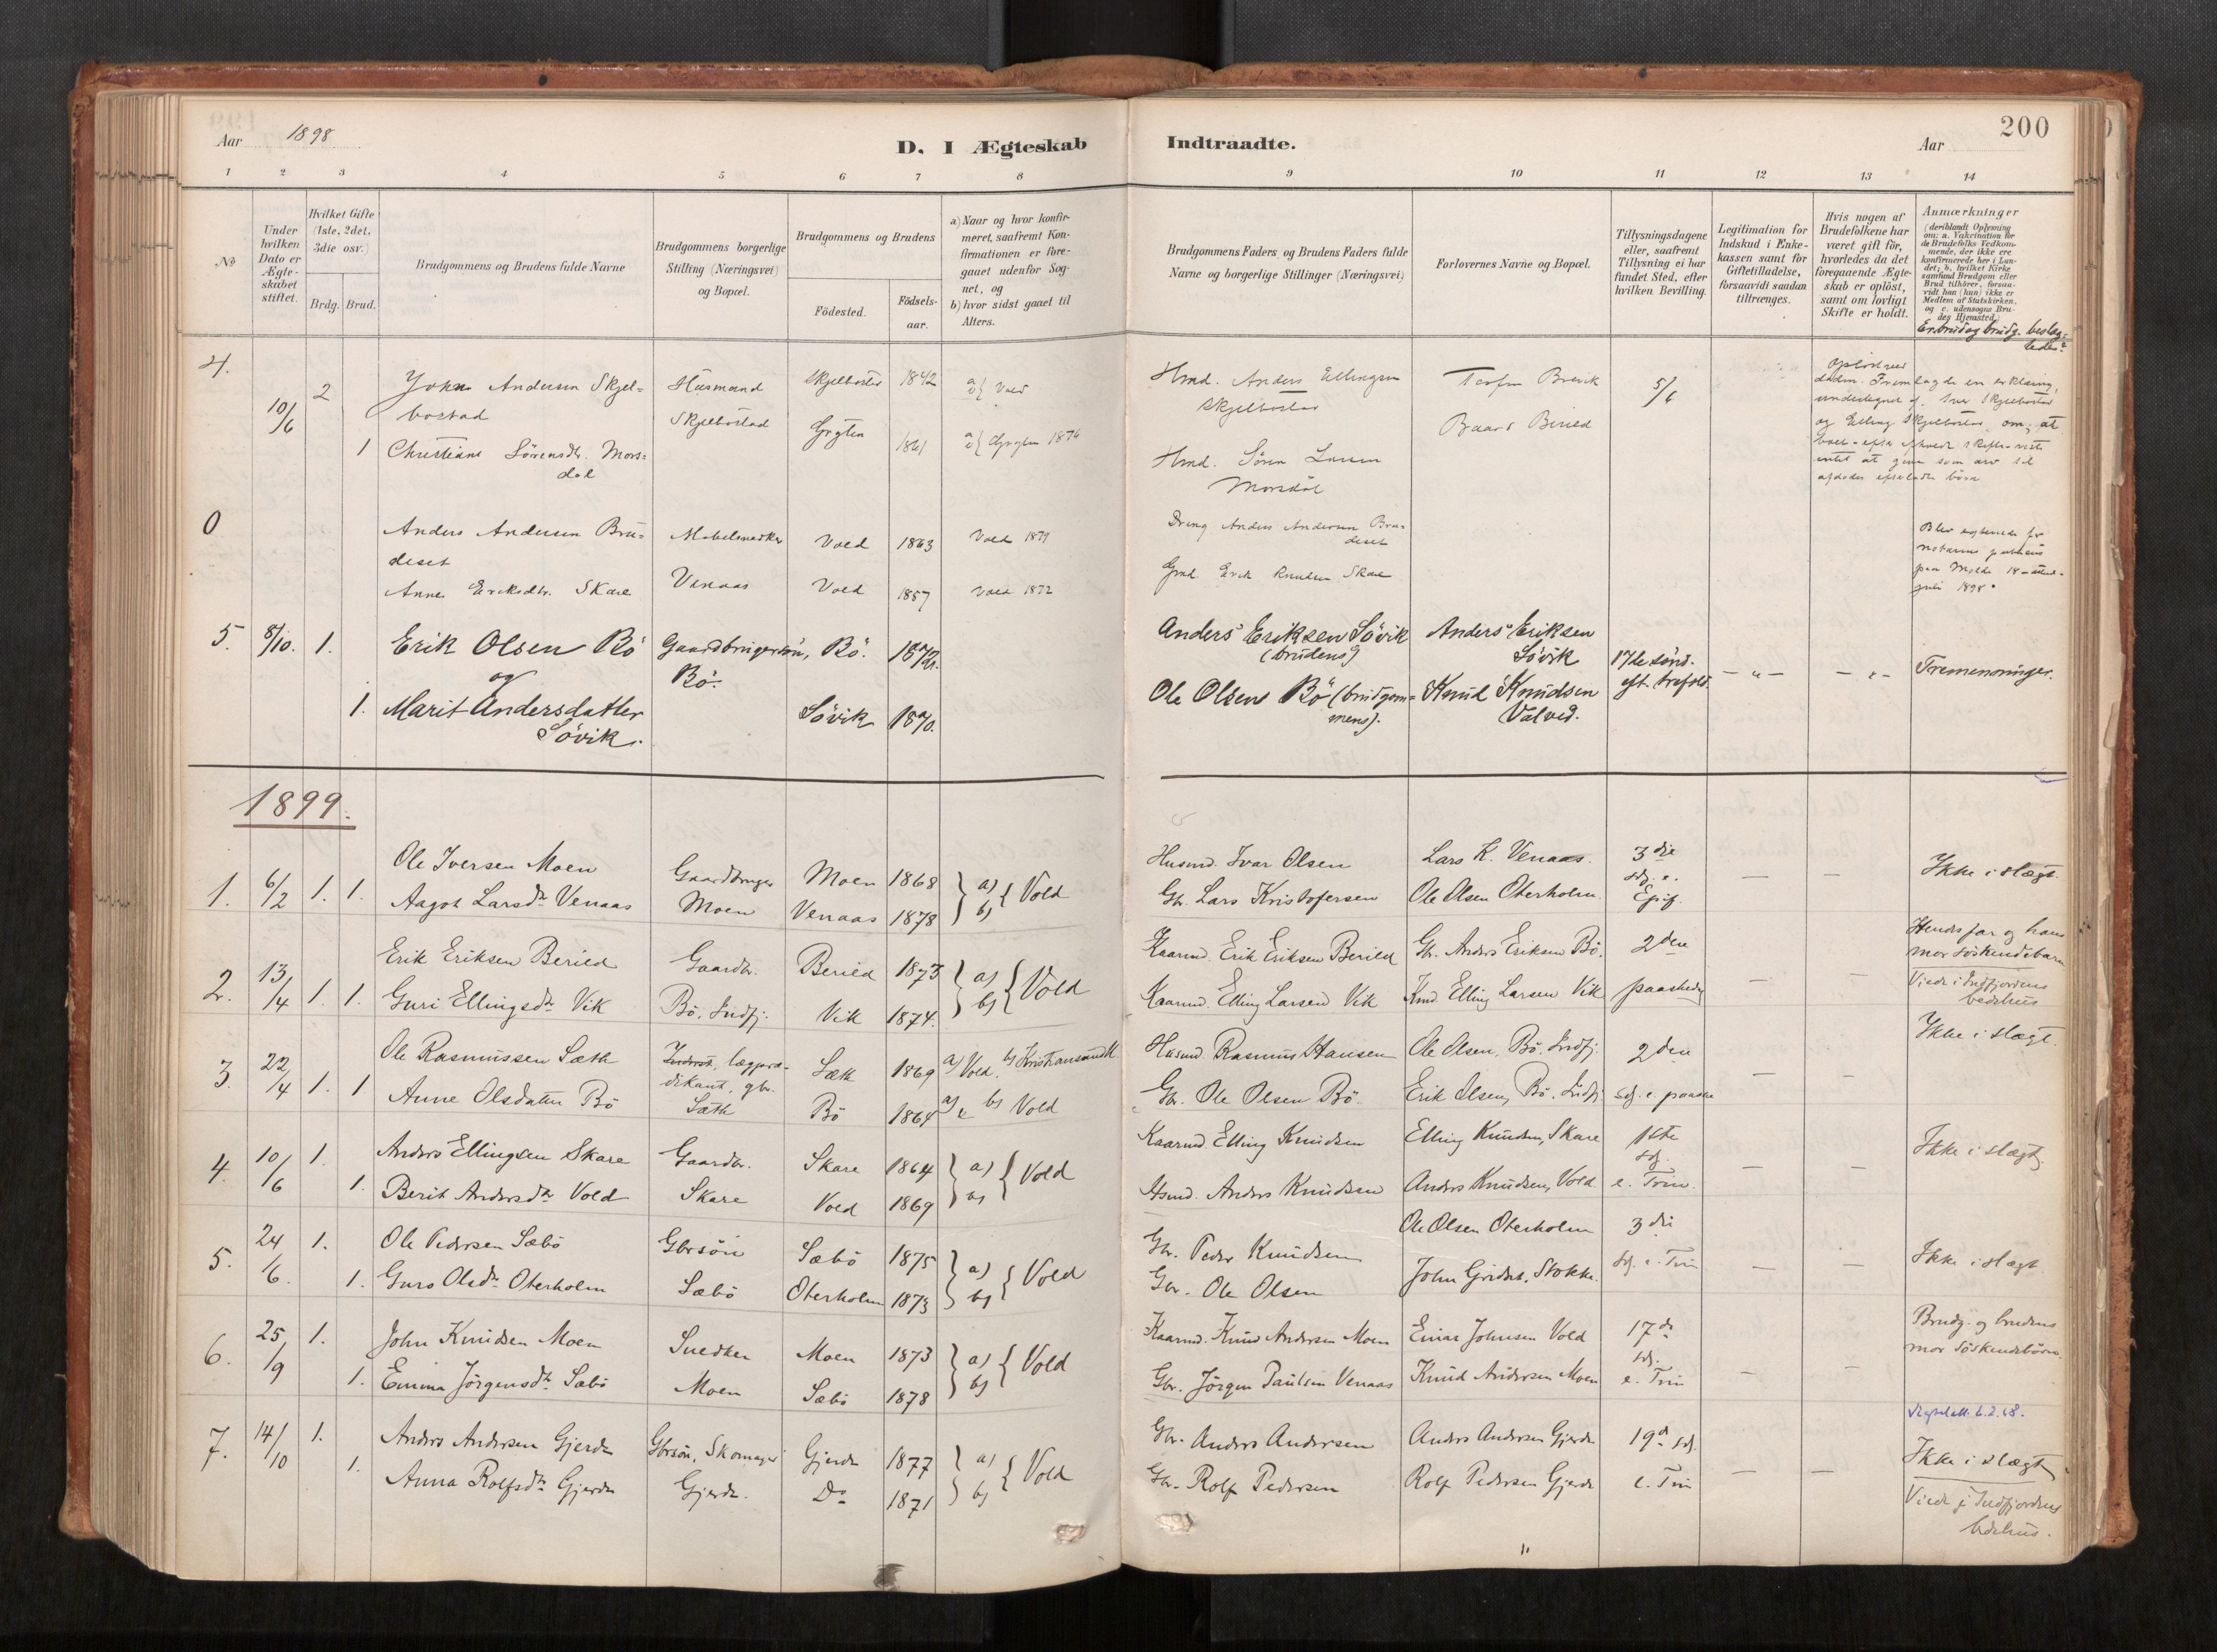 Aar 1898
D. I Ægteskab
Indtraadte.
Aar
200
1 2 3 4 5 6 7 8 9 10 11 12 13 14
No
Under hvilken Dato er Ægteskabet stiftet.
Hvilket Gifte (1ste, 2det, 3die osv.)
Brdg. Brud.
Brudgommens og Brudens fulde Navne
Brudgommens borgerlige Stilling (Næringsvei) og Bopæl.
Brudgommens og Brudens
Födested.
Födsels-aar.
a) Naar og hvor konfirmeret, saafremt Konfirmationen er foregaaet udenfor Sognet, og
b) hvor sidst gaaet til Alters.
Brudgommens Faders og Brudens Faders fulde Navne og borgerlige Stillinger (Næringsvei)
Forlovernes Navne og Bopæl.
Tillysningsdagene eller, saafremt Tillysning ei har fundet Sted, efter hvilken Bevilling.
Legitimation for Indskud i Enkekassen samt for Giftetilladelse, forsaavidt saadan tiltrænges.
Hvis nogen af Brudefolkene har været gift för, hvorledes da det foregaaende Ægteskab er oplöst, samt om lovligt Skifte er holdt.
Anmærkninger (deriblandt Oplysning om: a. Vakcination for de Brudefolks Vedkommende, der ikke ere konfirmerede her i Landet; b. hvilket Kirkesamfund Brudgom eller Brud tilhörer, forsaavidt han (hun) ikke er Medlem af Statskirken, og c. udensogns Brudes Hjemsted.)
Er brud og brudg. beslægtede?
4. 10/6 2 Johan Andersen Skjelbostad Husmand Skjelbostad Skjelbostad 1842 Vold
Hmd. Anders Ellingsen Skjelbostad Brevik 5/6
1 Christiane Sörensdtr. Morsdal Grytten 1861 Grytten 1876
Hmd. Sören Larsen Morsdal Baard Berild
0 Anders Andersen Brudeset Vold 1863 Vold 1879
Dreng Anders Andersen Brudeset
Anne Eriksdtr. Skare Venaas Vold 1857 Vold 1872
Gmd. Erik Knudsen Skare
Molde 18 juli 1898.
5. 8/10. 1. Erik Olsen Bö Gaardbrugersön, Bö. 1872.
og Bö.
1. Marit Andersdatter Sövik. Sövik 1870.
Anders Eriksen Sövik (brudens) Anders Eriksen Sövik 17de sönd. eft. trefold. Tremenninger.
Ole Olsens Bö (brudgommens). Knud Knudsen Valved.
1899.
1. 6/2 1. 1. Ole Iversen Moen Gaardbruger Moen 1868 a) b) Vold
Aagot Larsdtr Venaas Moen Venaas 1878
Husmd. Ivar Olsen Lars K. Venaas. 3die
Gbr. Lars Kristofersen Ole Olsen Oterholm sdg. e. Epif. Ikke i slægt.
2. 13/4 1. 1. Erik Eriksen Berild Gaardbr. Berild 1873 a) b) Vold
Guri Ellingsdtr Vik Bö, Indfj. Vik 1874.
Kaarmd. Erik Eriksen Berild Gbr. Anders Eriksen Bö. 2den
Kaarmd. Elling Larsen Vik Kmd. Elling Larsen Vik paaskedag
Hendes far og hans mor söskendebarn
Viede i Indfjordens bedehus
3. 22/4 1. 1. Ole Rasmussen Sæth lægprædikant, gbr. Sæth 1869 a) Vold. b) Kristiansund
Anne Olsdatter Bö Sæth Bö 1864 a) b) Vold
Husmd. Rasmus Hansen Ole Olsen, Bö. Indfj. 2den
Gbr. Ole Olsen Bö. Erik Olsen, Bö. Indfj. sdg. e. paaske
Ikke i slægt.
4. 10/6 1. 1. Anders Ellingsen Skare Gaardbr. Skare 1864 a) b) Vold
Berit Andersdtr Vold Skare Vold 1869
Kaarmd. Elling Knudsen Elling Knudsen, Skare 1ste sdg.
Husmd. Anders Knudsen Anders Knudsen, Vold e. Trin. Ikke i slægt.
5. 24/6. 1. 1. Ole Pedersen Sæbö Gbrsön Sæbö 1875 a) b) Vold
Guro Olsdtr Oterholm Sæbö Oterholm 1873
Gbr. Peder Knudsen Ole Olsen Oterholm 3die
Gbr. Ole Olsen John Stokke. sdg. e. Trin Ikke i slægt
6. 25/9 1. 1. John Knudsen Moen Snedker Moen 1873 a) b) Vold
Emma Jörgensdtr Sæbö Moen Sæbö 1878
Kaarmd. Knud Andersen Moen Einar Johnsen Vold 17de sdg.
Gbr. Jörgen Paulsen Venaas Knud Andersen Moen e. Trin
Brudg. og brudens mor söskendebörn.
7. 14/10 1. 1. Anders Andersen Gjerde Gbrsön, Skomager Gjerde 1877 a) b) Vold
Anna Rolfsdtr Gjerde Gjerde. Do 1871
Gbr. Anders Andersen Anders Andersen Gjerde 19de sdg.
Gbr. Rolf Pedersen Rolf Pedersen Gjerde e. Trin
Ikke i slægt
Viede i Indfjordens bedehus.